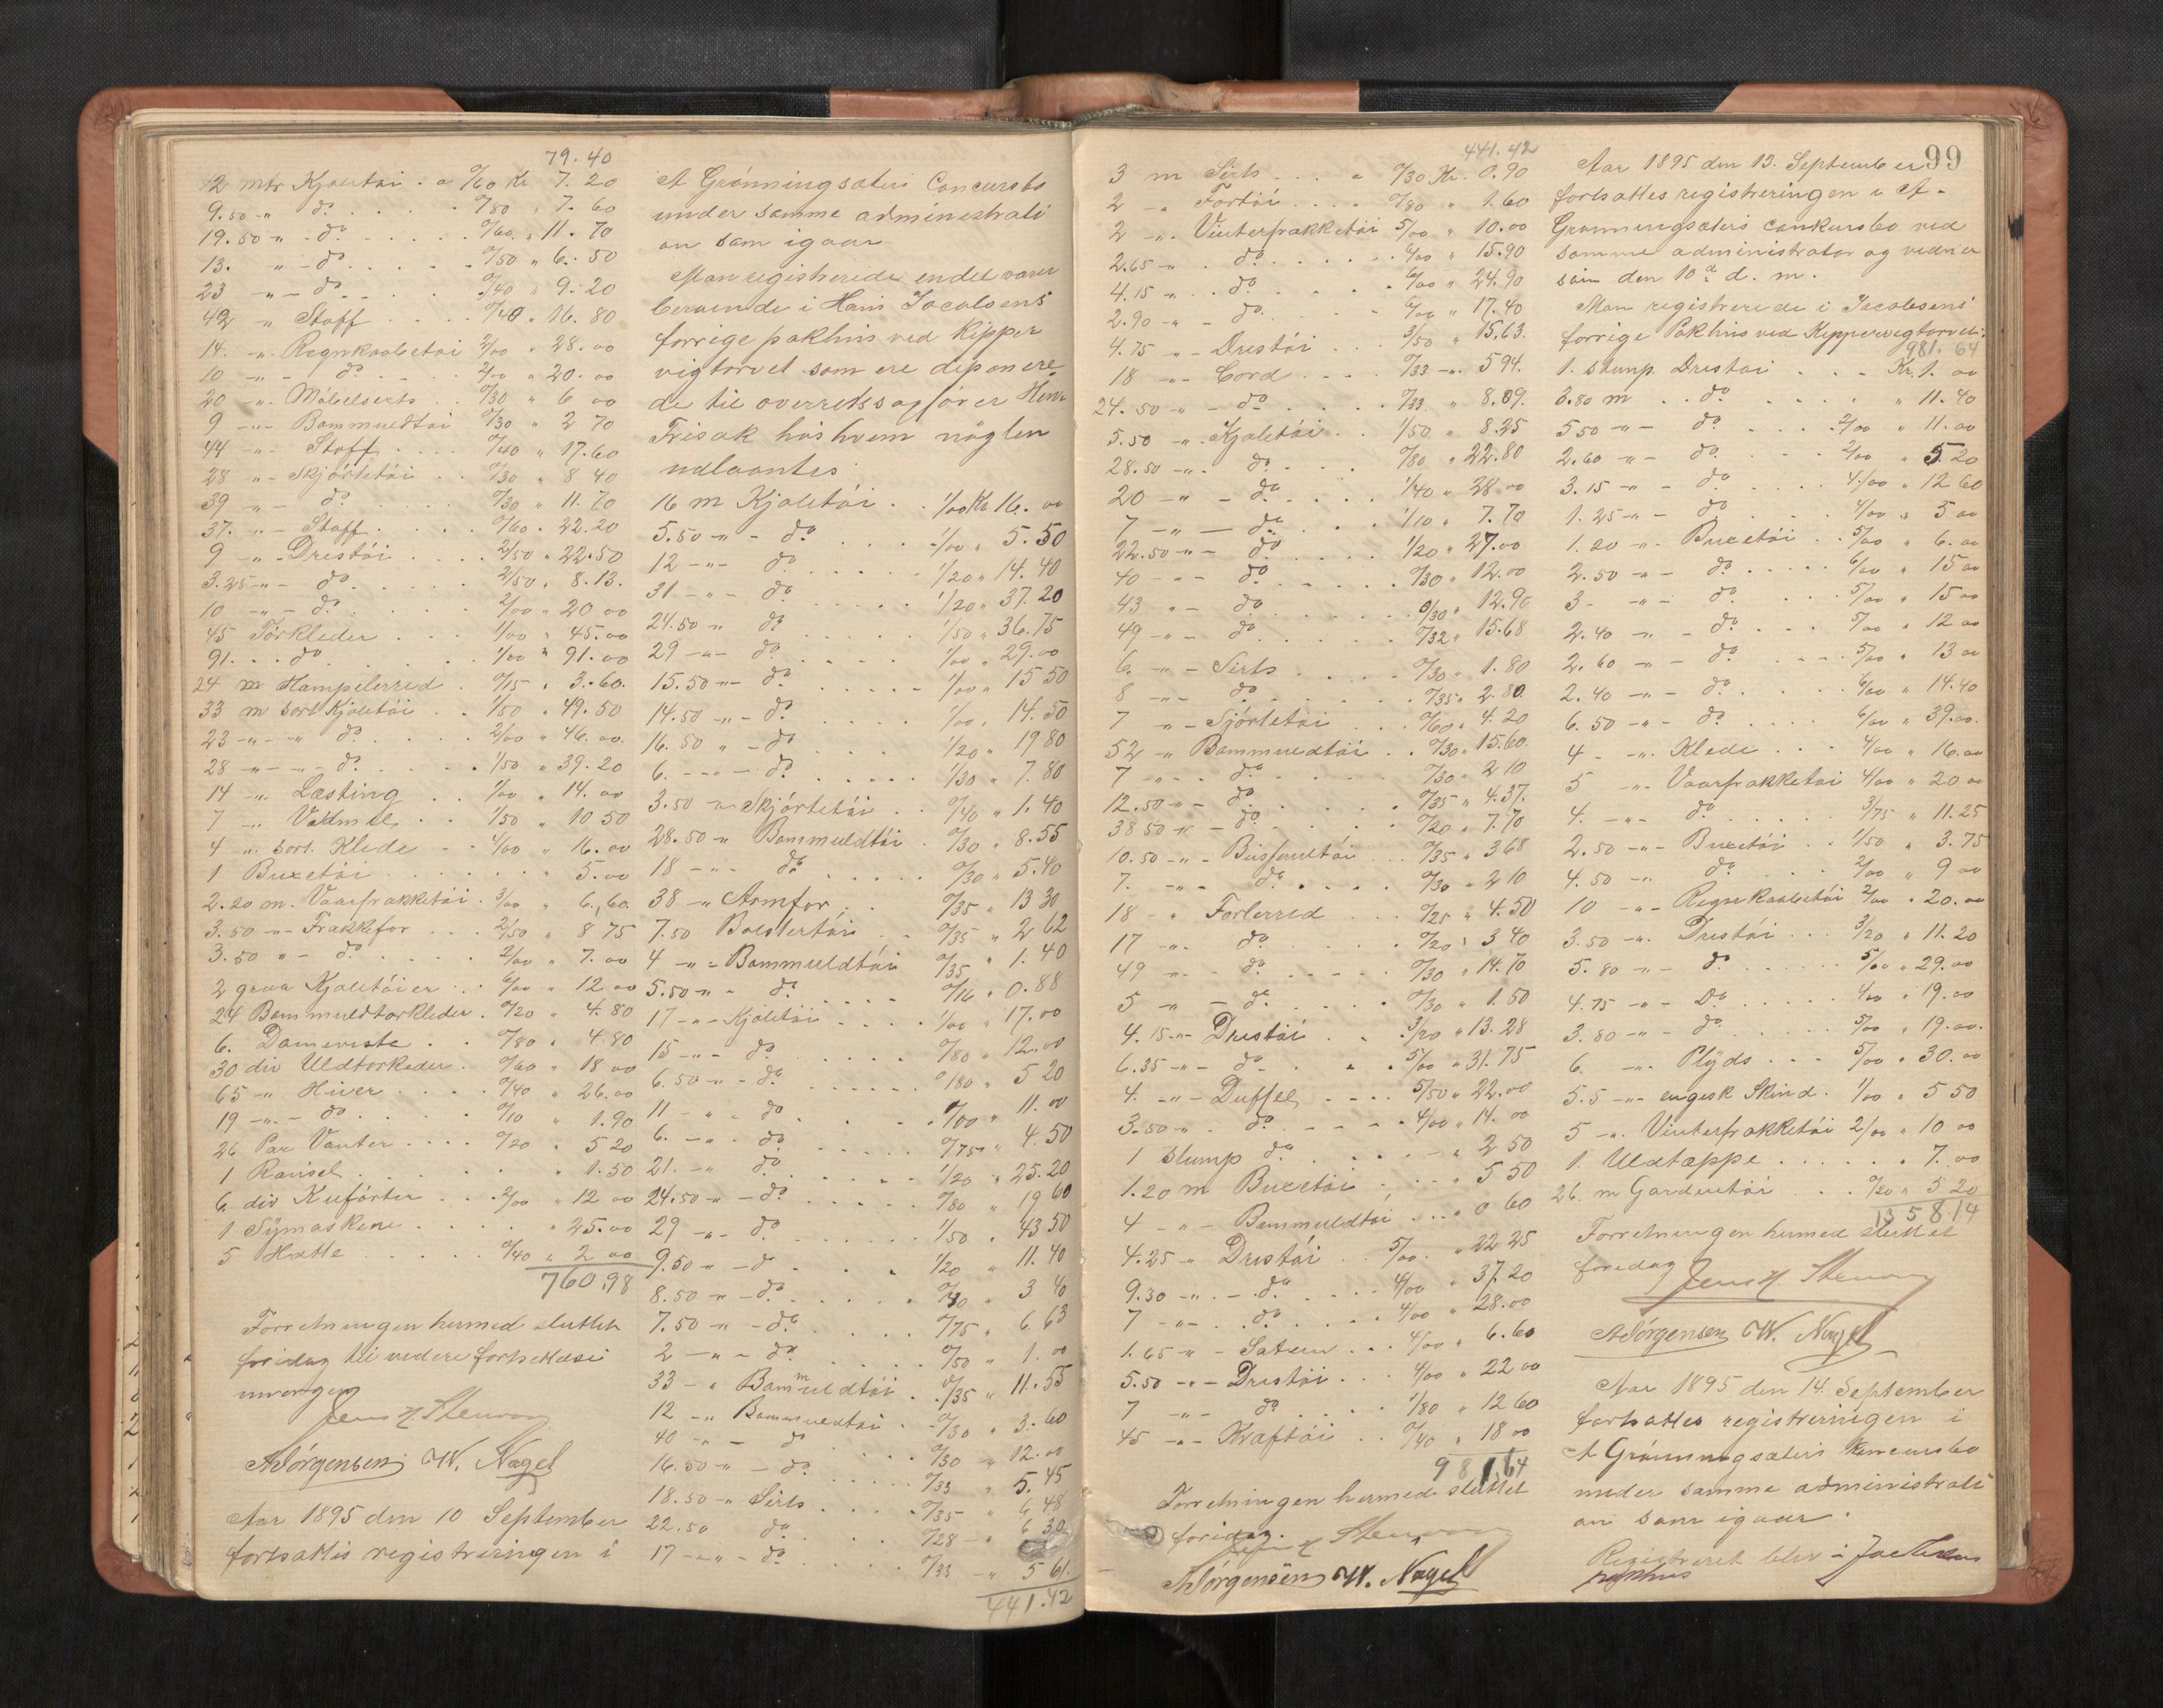 79.40
12 mtr Kjoletöi . a 0/60 Kr 7.20
9.50 -"- do . . . 0/80 " 7.60
19.50 " - do . . . 0/60 " 11.70
13. " - do . . . 0/50 " 6.50
23 -"- do . . . 0/40 " 9.20
42 " Stoff . . . 0/40 " 16.80
14. -"- Regnkaabetöi 2/00 " 28.00
10 -"- do . 2/00 " 20.00
20 -"- Möbelserts . . 0/30 " 6 00
9 -"- Bommuldtöi 0/30 " 2 70
44 -"- Stoff . . . 0/40 " 17.60
28 "- Skjörtetöi . . 0/30 " 8 40
39 "- do . . . 0/30 " 11.70
37. "- Stoff . . . 0/60 " 22.20
9 "- Drestöi . . . 2/50 " 22.50
3.25 -"- do . . . 2/50 " 8.13.
10 -"- do . . . 2/00 " 20 00
45 Törkleder . . . 1/00 " 45.00
91. . . do . . . 1/00 " 91.00
24 m Hampelerred . 0/15 " 3.60.
33 m sort Kjoletöi . . 1/50 " 49.50
23 -"- " do . . . 2/00 " 46.00.
28 -"- "- do . . . 1/50 " 39.20
14 -"- Læsting . . 1/00 " 14.00
7 -"- Vadmel . . 1/50 " 10 50
4 -"- sort. Klede . . 4/00 " 16.00
1 Buxetöi . . . " 5.00
2.20 m. Vaarfrakketöi . 3/00 " 6.60.
3.50 -"- Frakkefor . . . 2/50 " 8 75
3.50 "- do . . . 2/00 " 7.00
2 graa Kjoletöier . . 6/00 " 12.00
24 Bommuldtorkleder . 0/20 " 4.80
6. Dameveste . . 0/80 " 4.80
30 div Uldtorkeder . 0/60 " 18 00
65 -"- Huer . . . 0/40 " 26.00
19 -"- do . . . 0/10 " 1.90
26 Par Vanter . . . 0/20 " 5 20
1 Ransel . . . " 1.50
6. div Kuförter . . . 2/00 " 12 00
1 Symaskine . . . " 25.00
5 Hatte . . . 0/40 " 2 00
760.98
Forretningen hermed sluttet
foridag til videre fortsættelse
imorgen
Jens H Stenvaag
A Jörgensen W. Nagel
Aar 1895 den 10 September
fortsattes registreringen i
A Grönningsæters Concursbo
under samme administrati
on som igaar
Man registrerede endel varer
beroende i Hans Jacobsens
forrige pakhus ved Kipper
vigtorvet som ere deponere
de til overretssagförer Henr
Frisak hos hvem nöglen
udlaantes.
16 m Kjoletöi . . 1/00 Kr 16.00
5.50 -"- do . . . 1/00 " 5.50
12 -"- do . . . 1/20 " 14.40
31 -"- do . . . 1/20 " 37.20
24.50 "- do . . . 1/50 " 36.75
29 -"- do . . . 1/00 " 29.00
15.50 -"- do . . . 1/00 " 15 50
14.50 -"- do . . . 1/00 " 14.50
16.50 "- do . . . 1/20 " 19 80
6. -"- do . . . 1/30 " 7.80
3.50 -"- Skjörtetöi . . 0/40 " 1.40
28.50 -"- Bommuldtöi . 0/30 " 8.55
18 -"- do . . . 0/30 " 5.40
38 -"- Armfor . . 0/35 " 13 30
7.50 Bolstertöi . . 0/35 " 2 62
4 -"- Bommuldtöi 0/35 " 1.40
5.50 -"- do . . . 0/16 " 0.88
17 -"- Kjoletöi . . . 1/00 " 17.00
15 -"- do . . . 0/80 " 12.00
6.50 -"- do . . . 0/80 " 5 20
11 -"- do . . . 1/00 " 11.00
6. -"- do . . . 0/75 " 4.50
21. -"- do . . . 1/20 " 25.20
24.50 -"- do . . . 0/80 " 19 60
29 -"- do . . . 1/50 " 43 50
9.50 -"- do . . . 1/20 " 11.40
8.50 -"- do . . . 0/40 " 3 40
7.50 -"- do . . . 0/75 " 6.63
2 -"- do . . . 0/50 " 1.00
33 -"- Bommuldtöi . 0/35 " 11.55
12 -"- Bommuldtöi . 0/30 " 3.60
40 -"- do . . . 0/30 " 12.00
16.50 -"- do . . . 0/33 " 5.45
18.50 -"- Sirts . . . 0/35 " 6 48
22.50 do . . . 0/28 -"- 6 30
17 -"- do . . . 0/33 -"- 5 61.
441.42
99
441.42
3 m Sirts . . . a 0/30 Kr. 0.90
2 -"- Fortöi . . . 0/80 " 1.60
2 -"- Vinterfrakketöi 5/00 " 10.00
2.65 -"- do . . . 6/00 " 15.90
4.15 -"- do . . . 6/00 " 24.90
2.90 -"- do . . . 6/00 " 17.40
4.75 -"- Drestöi . . . 3/50 " 15.63.
18 -"- Cord . . . 0/33 -"- 5 94.
24.50 -"- do . . . 0/33 " 8.09.
5.50 -"- Kjoletöi . . 1/50 " 8.25
28.50 -"- do . . . 0/80 " 22.80
20 -"- do . . . 1/40 " 28.00
7 -"- do . . . 1/10 " 7.70
22.50 -"- do . . . 1/20 " 27.00
40 -"- do . . . 0/30 " 12.00
43 "- do . . . 0/30 " 12.90
49 -"- do . . . 0/32 " 15.68
6. -"- Serts . . . 0/30 " 1.80
8 -"- do . . . 0/35 " 2.80
7 -"- Sjörtetöi . . . 0/60 " 4.20
52 -"- Bommuldtöi . . 0/30 " 15.60.
7 -"- do . . . 0/30 " 2 10
12.50 -"- do . . . 0/35 " 4.37.
38 50 -"- do . . . 0/20 " 7.70
10.50 -"- Bussarultöi . . . 0/35 " 3 68
7. -"- do . . . 0/30 " 2 10
18 -"- Forlerred . . . 0/25 " 4.50
17 -"- do . . . 0/20 " 3 40
49 -"- do . . . 0/30 " 14.70
5 -"- do . . . 0/30 " 1.50
4.15 -"- Drestöi . . 3/20 " 13.28
6.35 -"- do . . . 5/00 " 31.75
4. -"- Duffel . . . 5/50 " 22.00
3.50 -"- do . . . 4/00 " 14.00
1 stump do . . . " 2 50
1.20 m Buxetöi . . . " 5 50
4 -"- Bommuldtöi . . . " 0 60
4.25 -"- Drestöi . . 5/00 " 22 25
9.30 -"- do . . . 4/00 " 37.20
7 -"- do . . . 4/00 " 28.00
1.65 -"- Satein . . . 4/00 " 6.60
5.50 -"- Drestöi . . . 4/00 " 22 00
7 -"- do . . . 1/80 " 12 60
45 -"- Kraftöi . . . 0/40 " 18 00
981.64
Forretningen hermed sluttet
foridag.
Jens H Stenvaag
A Jörgensen W. Nagel
Aar 1895 den 13. September
fortsattes registreringen i A-
Grönningsæters Conkursbo ved
samme administrator og vidner
som den 10de d. m.
Man registrerede i Jacobsens
forrige Pakhus ved Kippervigtorvet:
981.64
1. stump Drestöi . . . Kr. 1.00
3.80 m . . do . . . " 11.40
5 50 -"- do . . . 2/00 " 11.00
2.60 -"- do . . . 2/00 " 5.20
3.15 -"- do . . . 4/00 " 12 60
1.25 -"- do . . . 4/00 " 5 00
1.20 -"- Buxetöi . . 5/00 " 6.00
2.50 -"- do . . . 6/00 " 15 00
3- -"- do . . . 5/00 " 15 00
2.40 -"- do . . . 5/00 " 12 00
2.60 -"- do . . . 5/00 " 13 00
2.40 -"- do . . . 6/00 " 14.40
6.50 -"- do . . . 6/00 " 39.00.
4 - -"- Klede . . . 4/00 " 16.00
5 -"- Vaarfrakketöi 4/00 " 20 00
4. -"- do . . . 3/75 " 11.25
2.50 -"- Buxetöi . . 1/50 " 3.75
4.50 -"- do . . . 2/00 " 9 00
10 -"- Regnkaabetöi 2/00 " 20.00
3.50 -"- Drestöi . . . 3/20 " 11.20
5.80 -"- do . . . 5/00 " 29.00
4.75 -"- Do . . . 4/00 " 19.00
3.80 -"- do . . . 5/00 " 19.00.
6. -"- Plyds . . . 5/00 " 30.00
5.5 -"- engelsk Skind . 1/00 " 5 50
5 -"- Vinterfrakketöi 2/00 " 10 00
1. Uldtæppe . . . " 7.00
26. m Gardintöi . . 0/20 " 5 20
1358.14
Forretningen hermed sluttet
foridag Jens H Stenvaag
A Jörgensen W. Nagel
Aar 1895 den 14. September
fortsattes registreringen i
A Grönningsæters Concursbo
under samme administrati
on som igaar.
Registreret blev i Jacobsens
pakhus